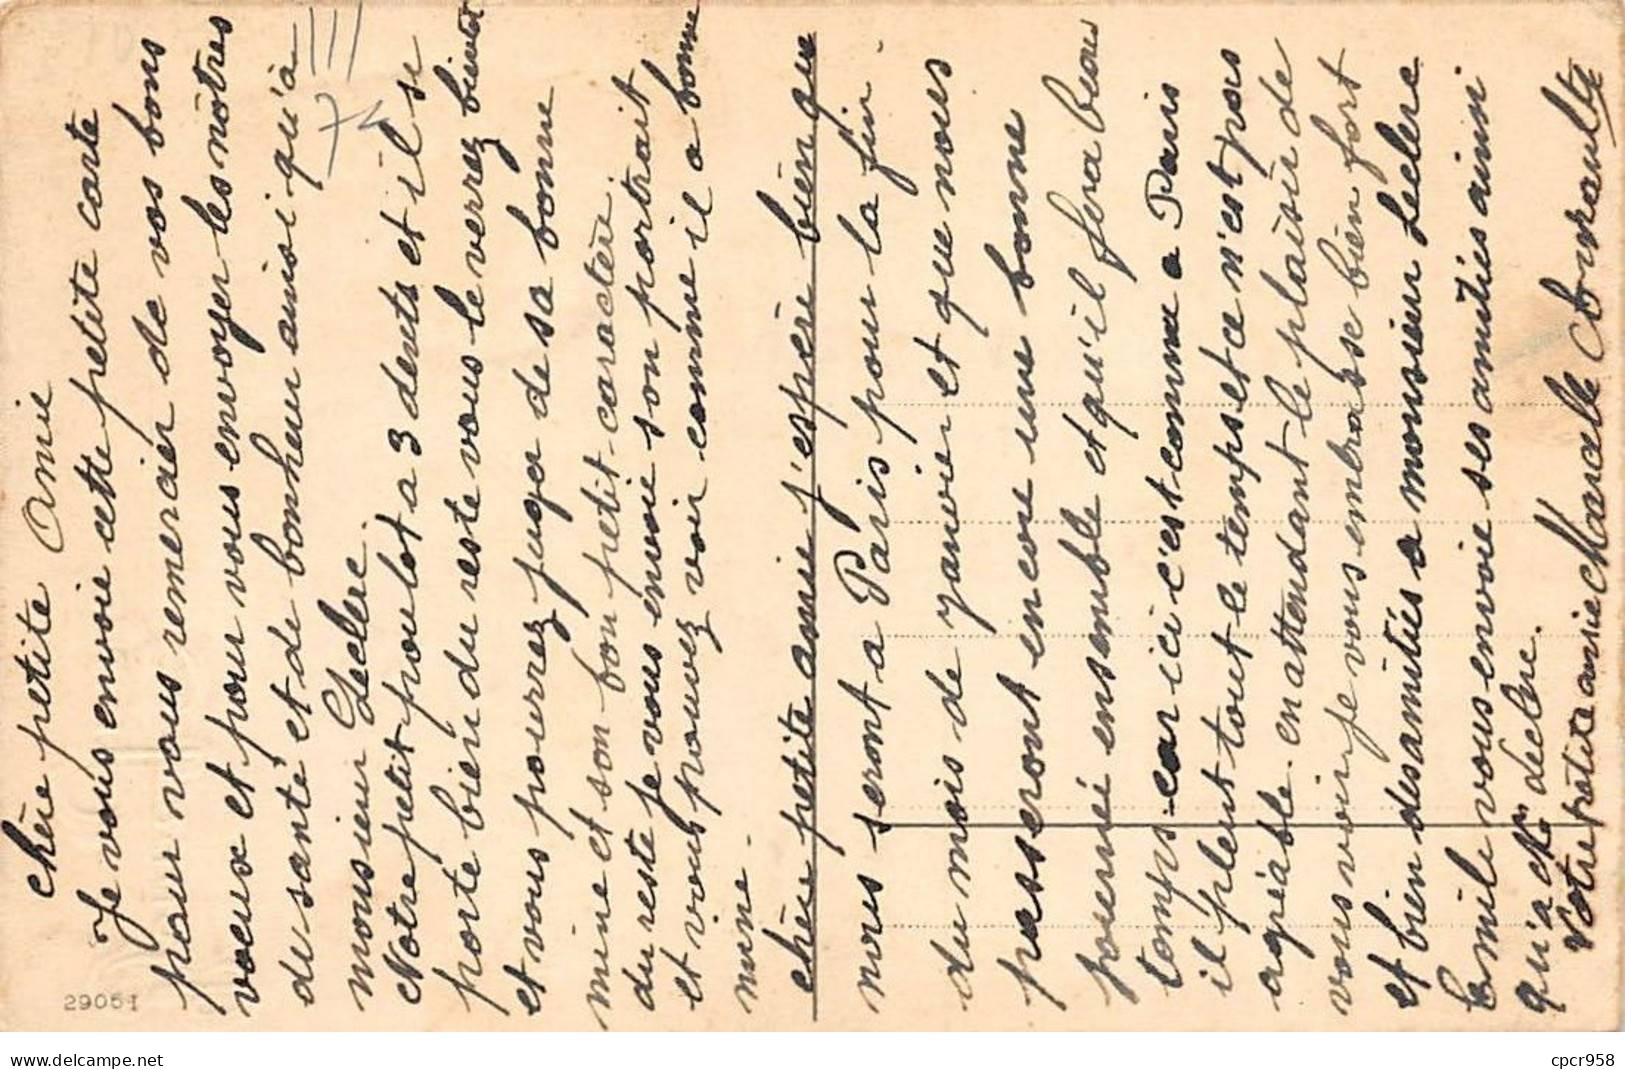 chère petite Amie
Je vous envoie cette petite carte
pour vous remercier de vos bons
voeux et pour vous envoyer les nôtres
de santé et de bonheur ainsi qu'à
monsieur Leclerc.
Notre petit poulot a 3 dents et il se
porte bien du reste vous le verrez bientot
et vous pourrez juger de sa bonne
mine et son bon petit caractère
du reste je vous envoie son portrait
et vous pouvez voir comme il a bonne
mine.
chère petite amie j'espère bien que
nous seront a Paris pour la fin
du mois de janvier et que nous
passeront encore une bonne
journée ensemble et qu'il fera beau
temps car ici c'est comme a Paris
il pleut tout le temps et ce n'est pas
agréable. en attendant le plaisir de
vous voir je vous embrasse bien fort
et bien des amitiés a monsieur Leclerc
Emile vous envoie ses amitiés ainsi
qu'a Mr Leclerc.
Votre petite amie Marcelle
29051
cpcr958
delcampe.net